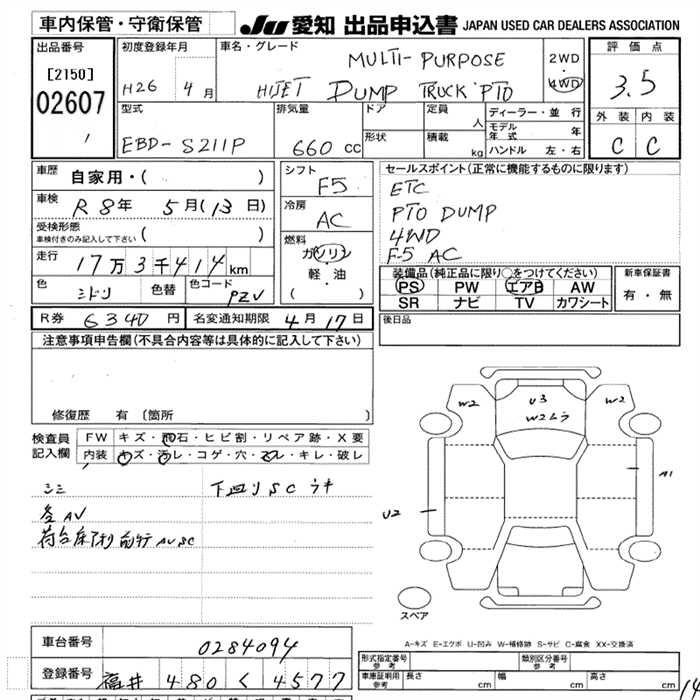 車内保管・守衛保管 JU愛知 出品申込書 JAPAN USED CAR DEALERS ASSOCIATION
出品番号
[2150]
02607
初度登録年月
H26 4月
車名・グレード
MULTI-PURPOSE
HIJET DUMP TRUCK PTO
2WD
・
4WD
評価点
3.5
外装 内装
C C
型式
EBD-S211P
排気量
660 CC
ドア
形状
定員 人
積載 kg
ディーラー・並行
モデル年式 年
ハンドル 左・右
車歴
自家用・( )
車検
R8年 5月(13日)
受検形態
車検付きのみ記入して下さい ( )
走行
17万3千414km
色 ミドリ 色替 色コード PZV
シフト
F5
冷房
AC
燃料
ガソリン
軽・油
( )
セールスポイント(正常に機能するものに限ります)
ETC
PTO DUMP
4WD
F-5 AC
装備品(純正品に限り○をつけてください)
PS PW エアB AW
SR ナビ TV カワシート
新車保証書
有・無
R券 6340円 名変通知期限 4月17日
後日品
注意事項申告欄(不具合内容等は具体的に記入して下さい)
修復歴 有 [箇所 ]
検査員記入欄
FW キズ・飛石・ヒビ割・リペア跡・X要
内装 キズ・汚レ・コゲ・穴・スレ・キレ・破レ
シミ
下廻りSCサキ
各AV
W2
U3
W2ムラ
W2
A1
U2
スペア
A-キズ E-エクボ U-凹み W-補修跡 S-サビ C-腐食 XX-交換済
車台番号 0284094
登録番号 福井 480 く 4577
型式指定番号
参考
類別区分番号
参考
車庫証明用
参考
長さ cm 幅 cm 高さ cm